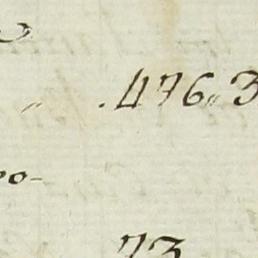 " .476,,3
po-
73